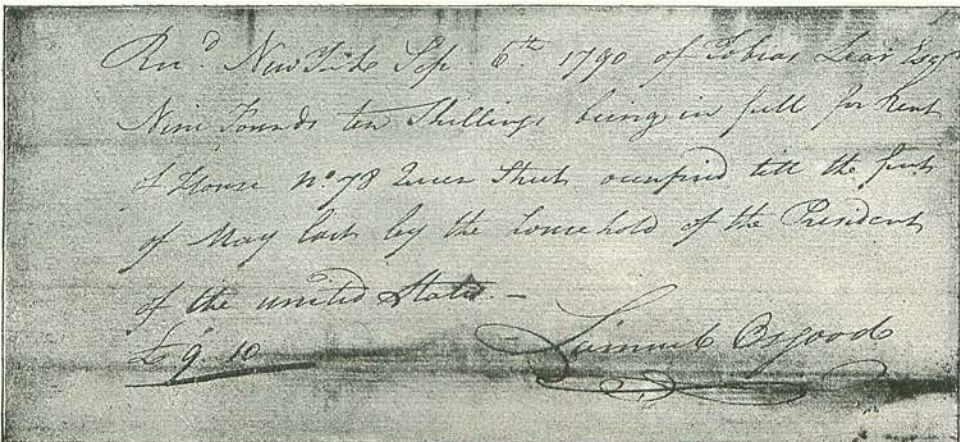 Rec.d New York Sep. 6th 1790 of Tobias Lear Esqr
Nine Pounds ten Shillings being in full for Rent
of House No 78 Queen Street occupied till the first
of May last by the household of the President
of the united States. –
£9. 10 Samuel Osgood